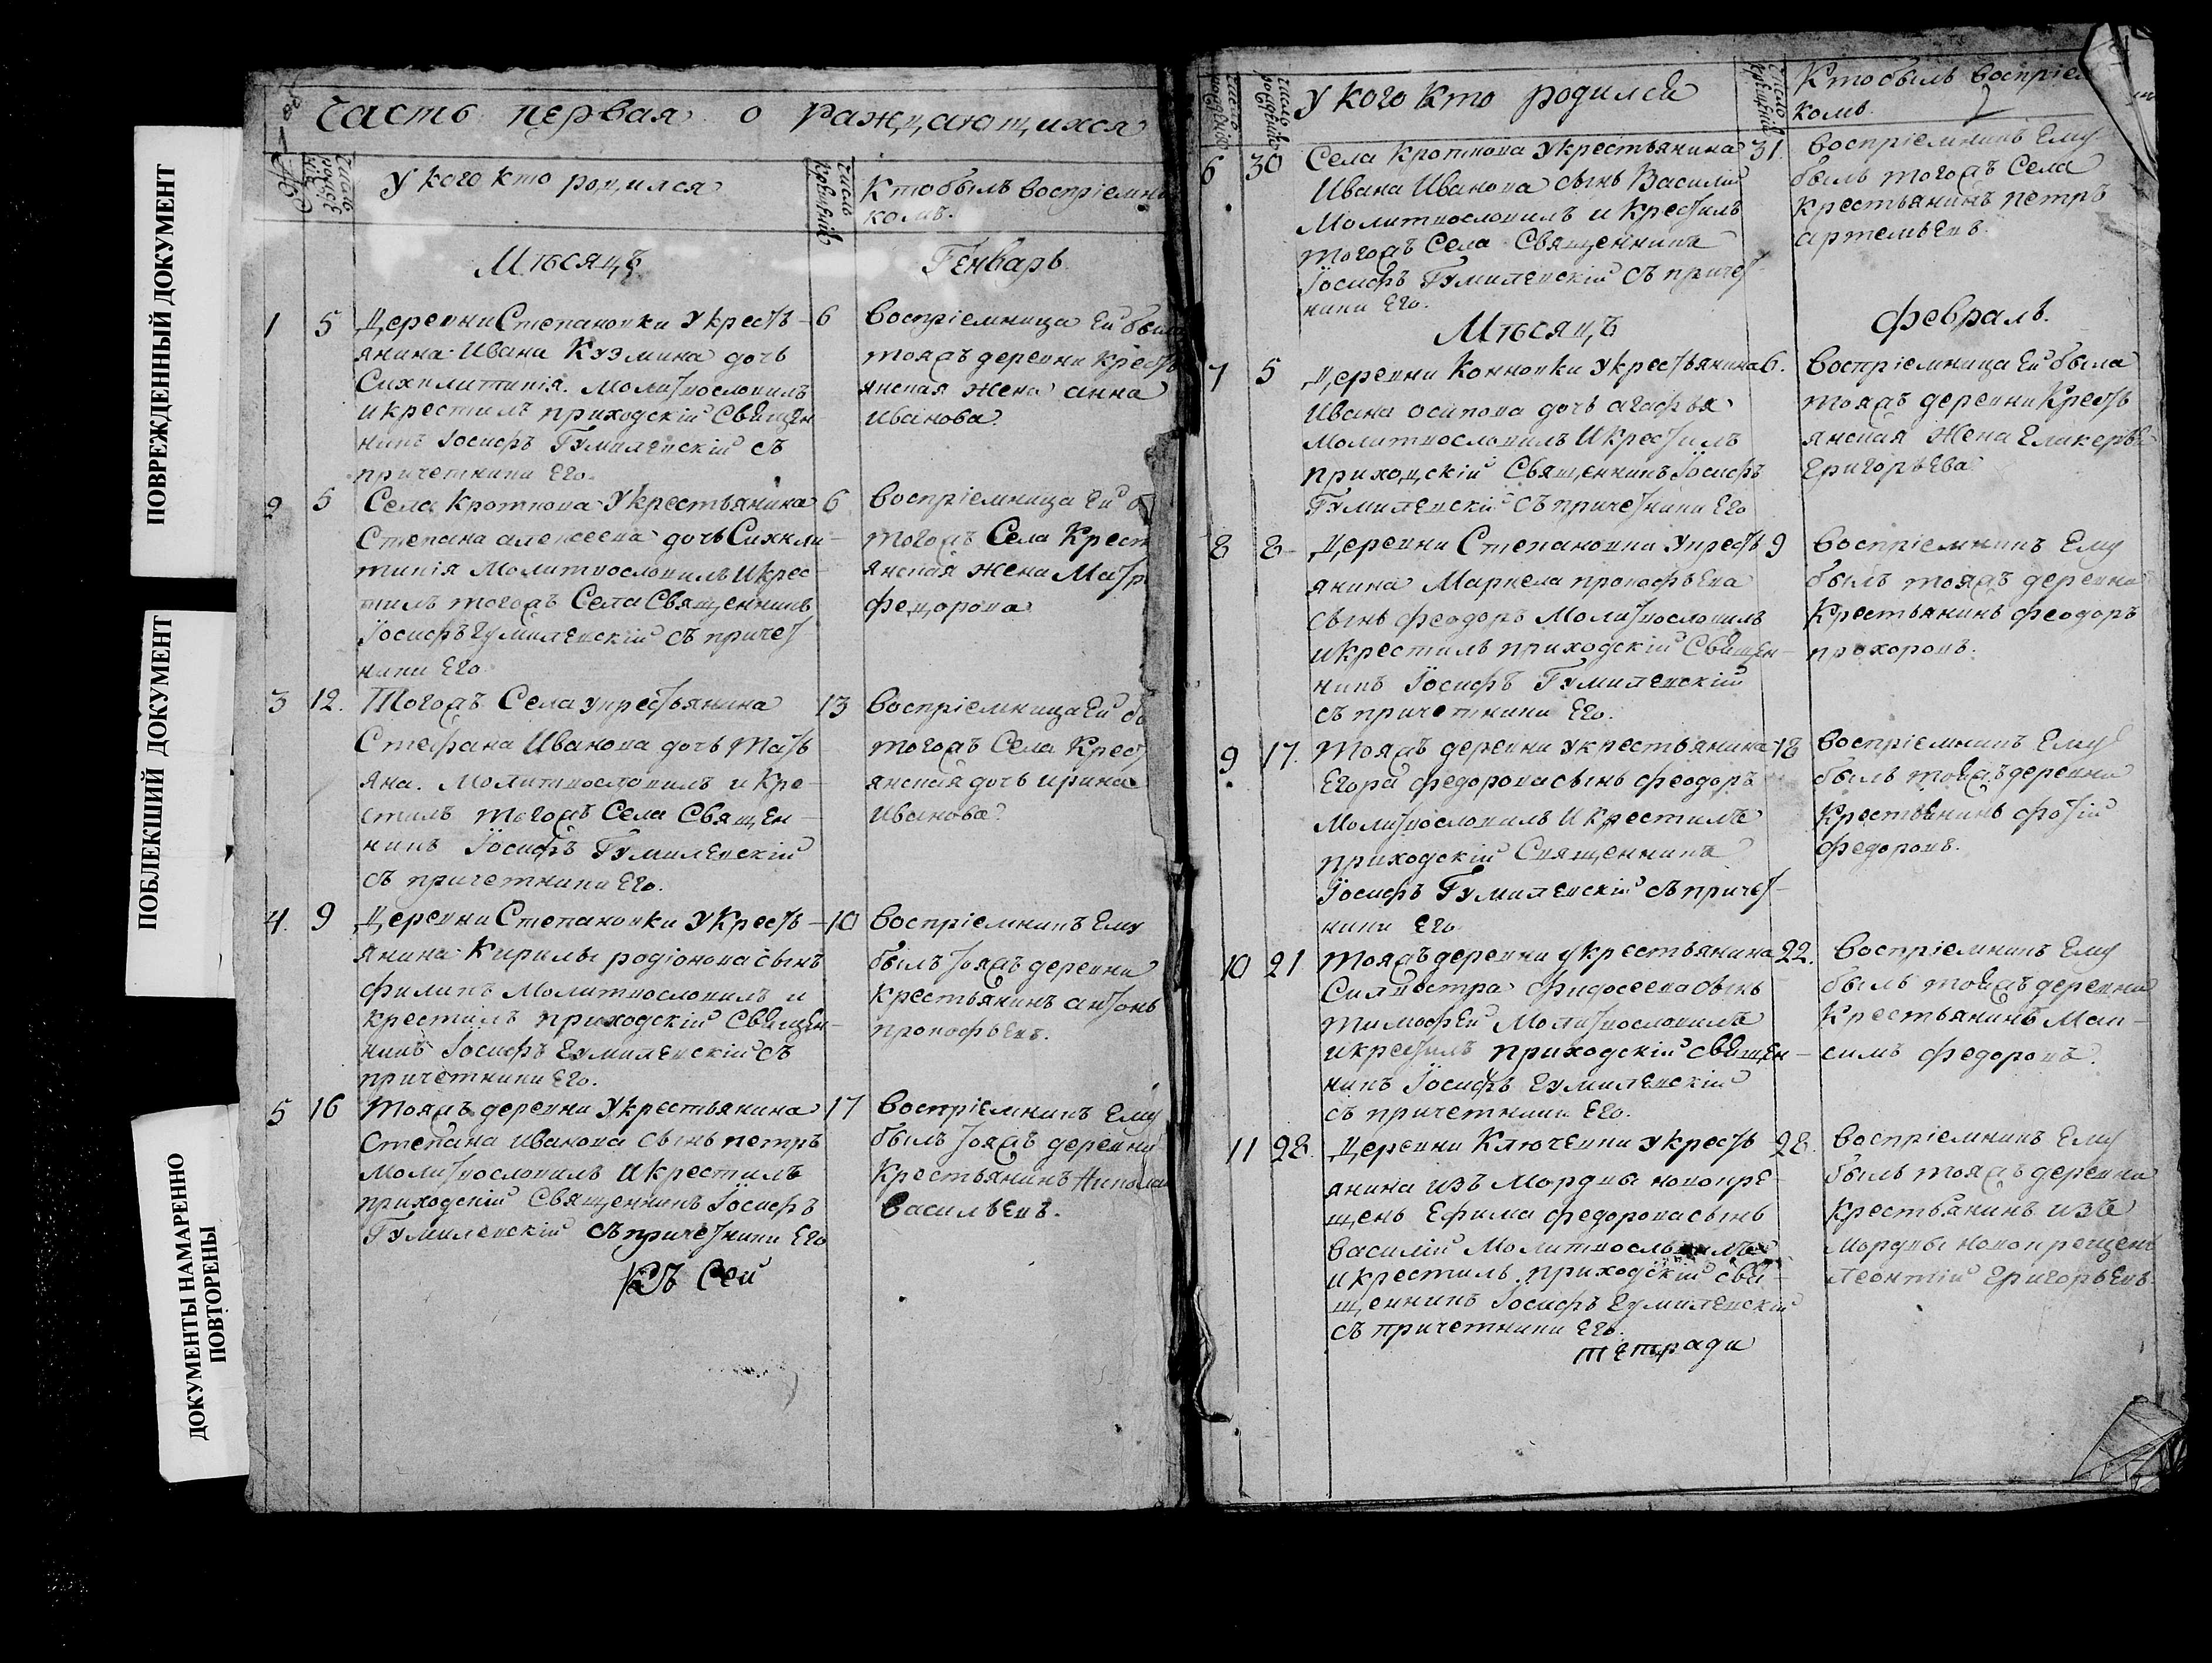 ПОВРЕЖДЕННЫЙ ДОКУМЕНТ
ПОБЛЕКШИЙ ДОКУМЕНТ
ДОКУМЕНТЫ НАМАРЕННО
ПОВТОРЕНЫ
Часть первая о раждающихся
У кого кто родился
Число крещенія
Кто былъ воспріемни
комъ.
Мѣсяцъ
Генварь
1 5 Деревни Степановки У кресть- 6
янина Ивана Кузмина дочь
Сихклитикія. молитвословилъ
и крестилъ приходскій Священ
никъ Іосифъ Гумилевскій съ
причетники Его.
Воспріемница Ей была
тояжъ деревни кресть
янская жена анна
Иванова.
2 5 Села Кроткова У крестьянина 6
Степана алексеева дочь Сихкли-
тикія Молитвословилъ И крес-
тилъ тогожъ Села Священникъ
Іосифъ Гумилевскій съ причет-
ники Его
Воспріемница Ей б
тогожъ Села Крест
янская жена Матр
федорова
3 12. Тогожъ Села у крестьянина 13
Стефана Иванова дочь Тать
яна. Молитвословилъ и Кре-
стилъ тогожъ Села Священ-
никъ Іосифъ Гумилевскій
съ причетники Его.
Воспріемница Ей бы
тогожъ Села Крест
янская дочь ирина
Иванова
4. 9 Деревни Степановки У Кресть- 10
янина Кирилы родіонова сынъ
филипъ Молитвословилъ и
крестилъ приходскій Священ-
никъ Іосифъ Гумилевскій съ
причетники Его.
Воспріемникъ Ему
былъ тояжъ деревни
крестьянинъ антонъ
прокофьевъ.
5 16 Тояжъ деревни У крестьянина 17
Степана Иванова сынъ петръ
молитвословилъ И крестилъ
приходскій Священникъ Іосифъ
Гумилевскій съ причетники Его
Воспріемникъ Ему
былъ тояжъ деревни
Крестьянинъ Никола
Васильевъ.
Къ Сей
У кого кто родился
Число крещенія
Кто былъ воспріем
комъ.
6 30 Села Кроткова У крестьянина 31.
Ивана Иванова сынъ Василій
Молитвословилъ и Крестилъ
тогожъ Села Священникъ
Іосифъ Гумилевскій съ причет-
ники Его.
Воспріемникъ Ему
былъ тогожъ Села
Крестьянинъ петръ
артемьевъ
Мѣсяцъ
февраль.
7 5 Деревни Конновки У крестьянина 6.
Ивана осипова дочь агафья
молитвословилъ И крестилъ
приходскій Священникъ Іосифъ
Гумилевскій съ причетники Его
Воспріемница Ей была
тояжъ деревни Кресть
янская жена Гликерья
Григорьева
8 8 Деревни Степановки У кресть 9
янина Маркела прокофьева
сынъ феодоръ Молитвословилъ
и крестилъ приходскій Священ-
никъ Іосифъ Гумилевскій
съ причетники Его.
Воспріемникъ Ему
былъ тояжъ деревни
Крестьянинъ феодоръ
прохоровъ.
9 17. Тояжъ деревни у крестьянина 18
Егора федорова сынъ феодоръ
Молитвословилъ И крестилъ
приходскій Священникъ
Іосифъ Гумилевскій съ причет-
ники Его
Воспріемникъ Ему
былъ тояжъ деревни
Крестьянинъ фотій
федоровъ.
10 21 Тояжъ деревни у крестьянина 22.
Силвестра фифосеева сынъ
тимофей Молитвословилъ
и крестилъ приходскій священ-
никъ Іосифъ Гумилевскій
съ причетники Его.
Воспріемникъ Ему
былъ тояжъ деревни
Крестьянинъ Мак-
симъ федоровъ.
11 28. Деревни Ключевки У кресть 28.
янина изъ Мордвы новокре-
щенъ Ефима федорова сынъ
василій Молитвословилъ
и крестилъ приходскій свя-
щенникъ Іосифъ Гумилевскій
съ причетники Его.
Воспріемникъ Ему
былъ тояжъ деревни
крестьянинъ изъ
Мордвы новокрещенъ
Леонтій Григорьевъ
тетради